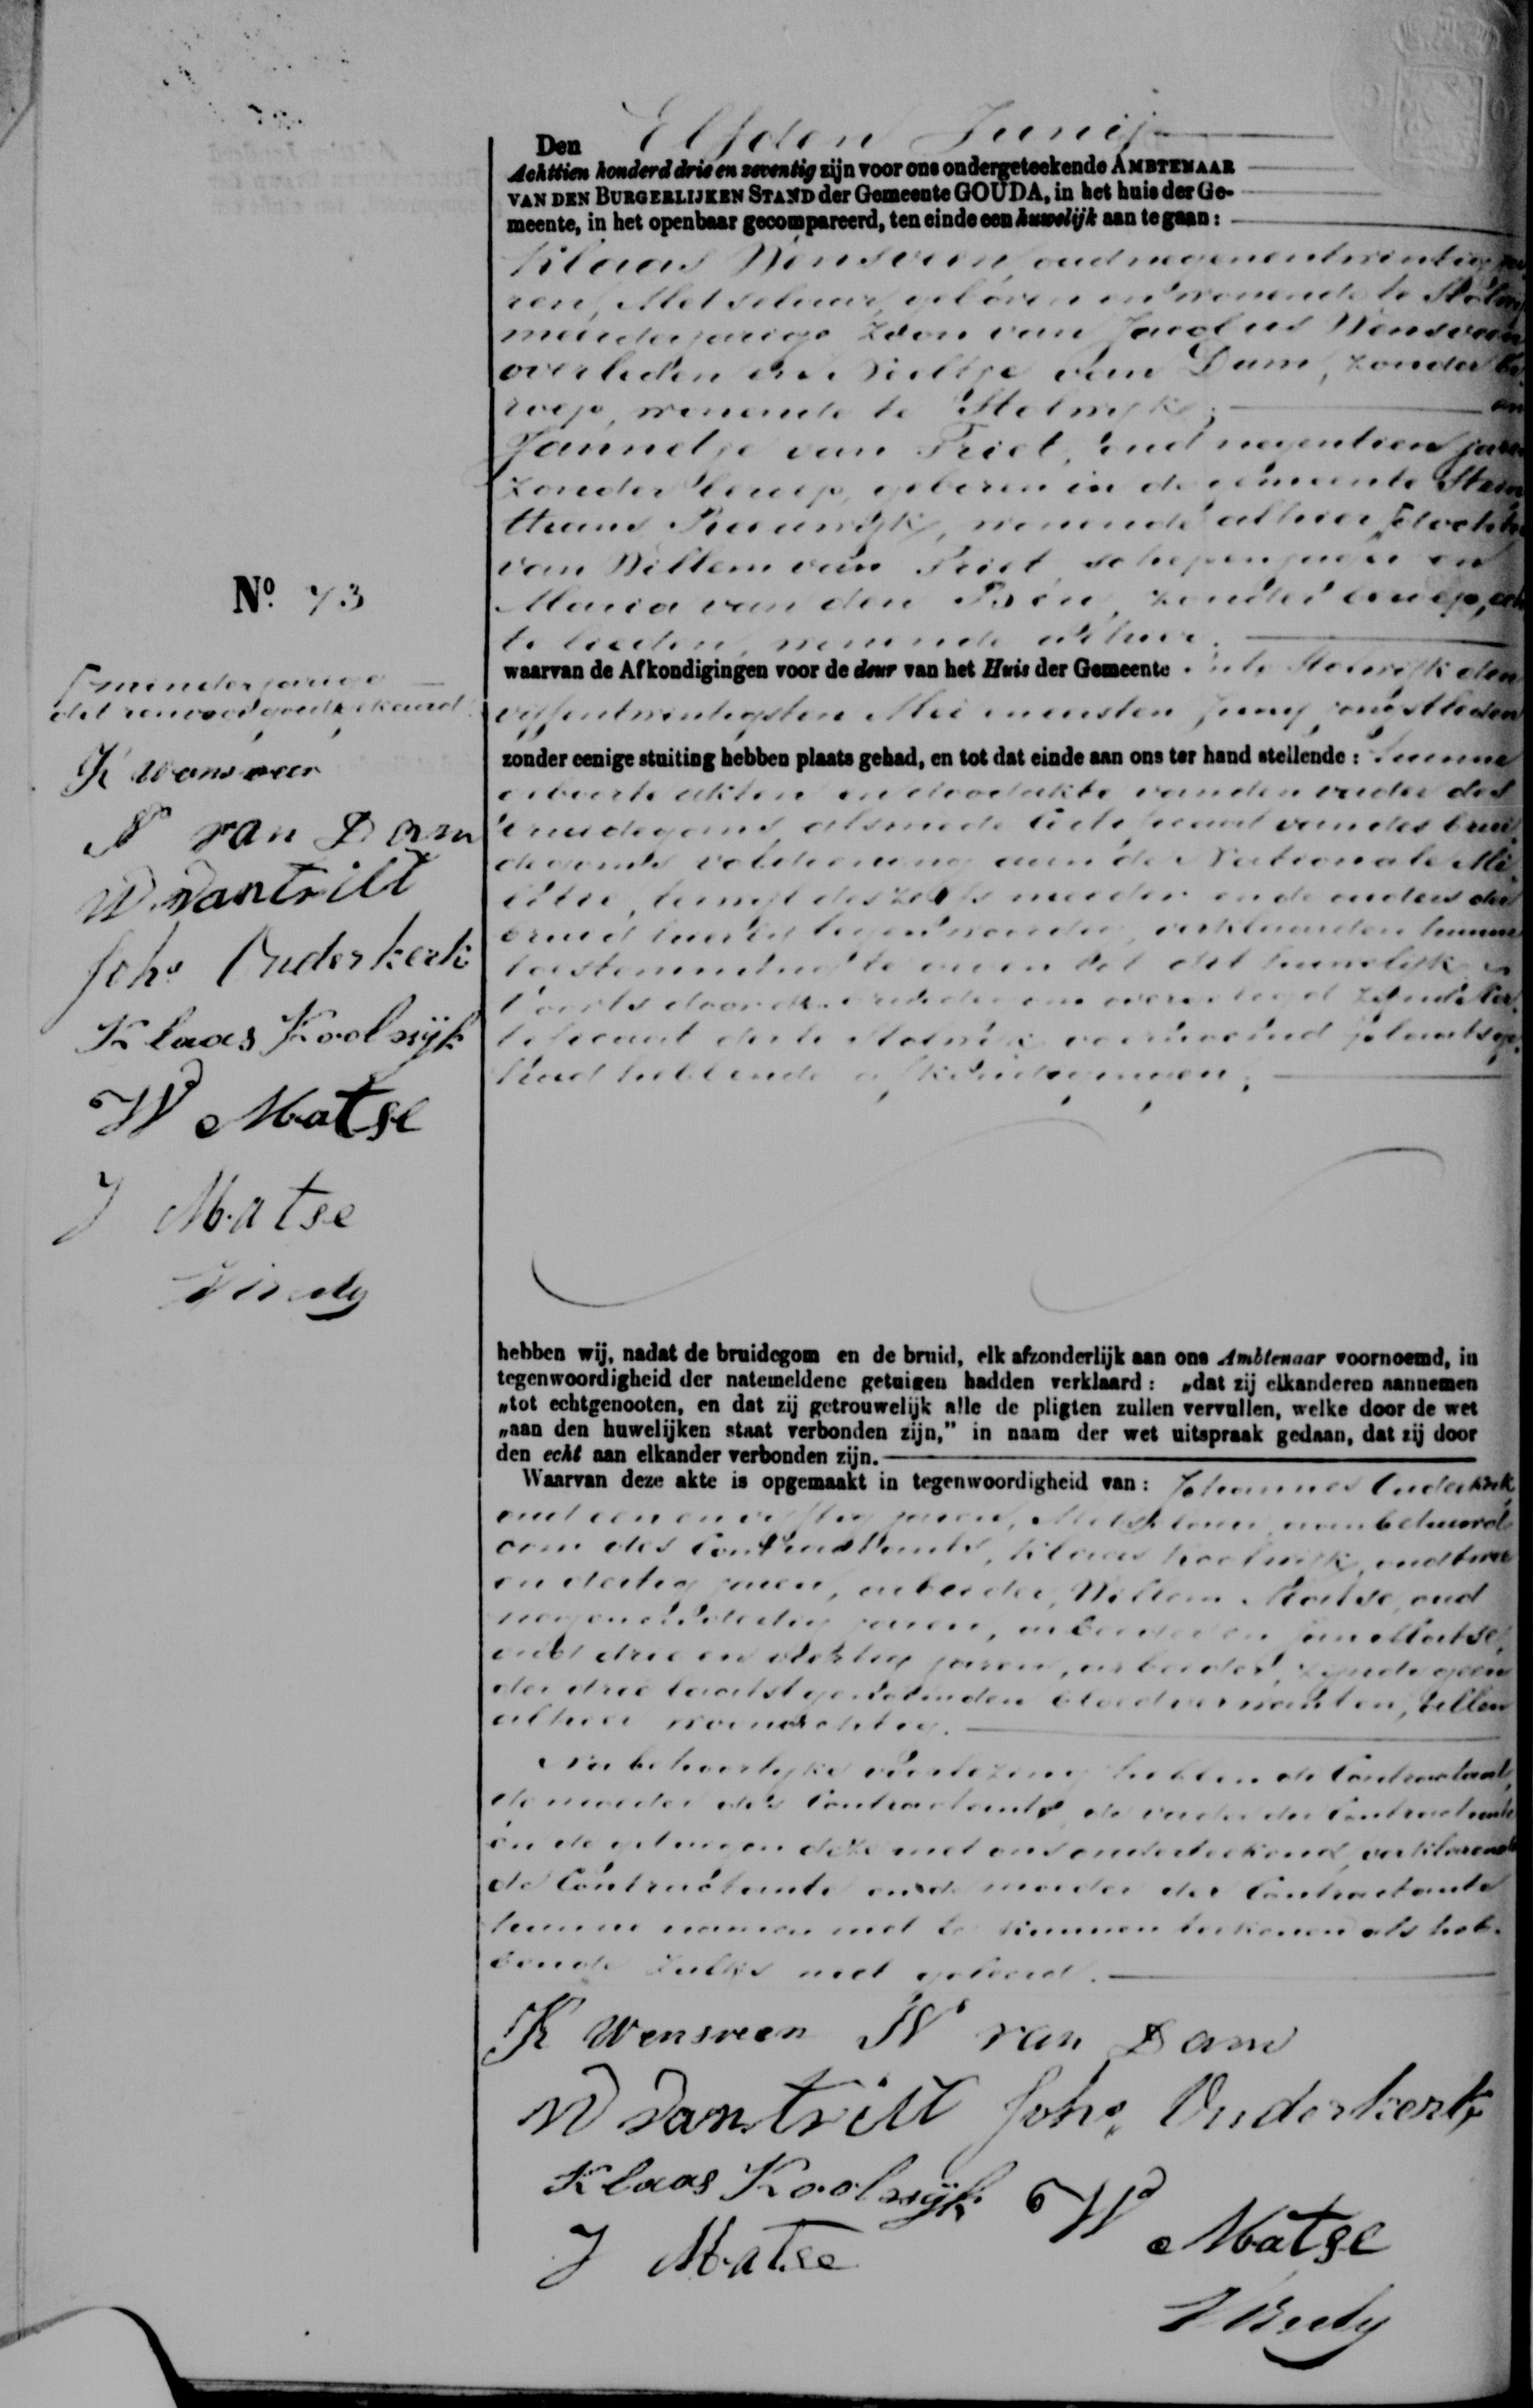 Den Elfden Junij
Achttien honderd drie en zeventig zijn voor ons ondergeteekende AMBTENAAR
VAN DEN BURGERLIJKEN STAND der Gemeente GOUDA, in het huis der Ge-
meente, in het openbaar gecompareerd, ten einde een huwelijk aan te gaan:
Klaas Wensveen, oud negenentwintig ja
ren, Metselaar, geboren en wonende te Stolwijk
meerderjarige Zoon van Jacobus Wensveen
overleden en Neeltje van Dam, zonder be
roep, wonende te Stolwijk; en
Jannetje van Triet, oud negentien jaren
zonder beroep, geboren in de gemeente
thans Reeuwijk, wonende alhier dochter
van Willem van Triet, schepenjager en
Maria van den Berg, zonder beroep, ech
te lieden, wonende alhier.
waarvan de Afkondigingen voor de deur van het Huis der Gemeente en te Stolwijk den
vijfentwintigsten Mei en eersten Junij jongstleden
zonder eenige stuiting hebben plaats gehad, en tot dat einde aan ons ter hand stellende: hunne
geboorte akten en doodakte van den vader des
bruidegoms alsmede Certificaat van des brui
degoms voldoening aan de Nationale Mi
litie, terwijl deszelfs moeder en de ouders der
bruid hierbij tegenwoordig, verklaarden hunne
toestemming te geven tot dit huwelijk
voorts door den bruidegom overgelegd zijnde Cer
tificaat der te Stolwijk voormeld plaats ge
had hebbende afkondigingen;
No. 73
minderjarige
dit renvooi goedgekeurd
K Wensveen
N van Dam
W van triet
Johs Ouderkerk
Klaas Koolwijk
W Matse
J Matse
hebben wij, nadat de bruidegom en de bruid, elk afzonderlijk aan ons Ambtenaar voornoemd, in
tegenwoordigheid der natemeldene getuigen hadden verklaard: „dat zij elkanderen aannemen
„tot echtgenooten, en dat zij getrouwelijk alle de pligten zullen vervullen, welke door de wet
„aan den huwelijken staat verbonden zijn,” in naam der wet uitspraak gedaan, dat zij door
den echt aan elkander verbonden zijn.
Waarvan deze akte is opgemaakt in tegenwoordigheid van: Johannes Ouderkerk
oud een en vijftig jaren, Metselaar, aanbehuwd
oom des Contractants, Klaas Koolwijk, oud twee
en dertig jaren, arbeider, Willem Matse, oud
negenendertig jaren, arbeider en Jan Matse,
oud drie en dertig jaren, arbeider, zijnde geen
der drie laatstgenoemden bloedverwanten, allen
alhier woonachtig.
Na behoorlijke voorlezing hebben de Contractant,
de moeder des Contractants, de vader der Contractante
en de getuigen deze met ons onderteekend, verklarende
de Contractante en de moeder der Contractante
hunne namen niet te kunnen teekenen als heb-
bende zulks niet geleerd.
K Wensveen N van Dam
W van triet Johs Ouderkerk
Klaas Koolwijk W Matse
J Matse